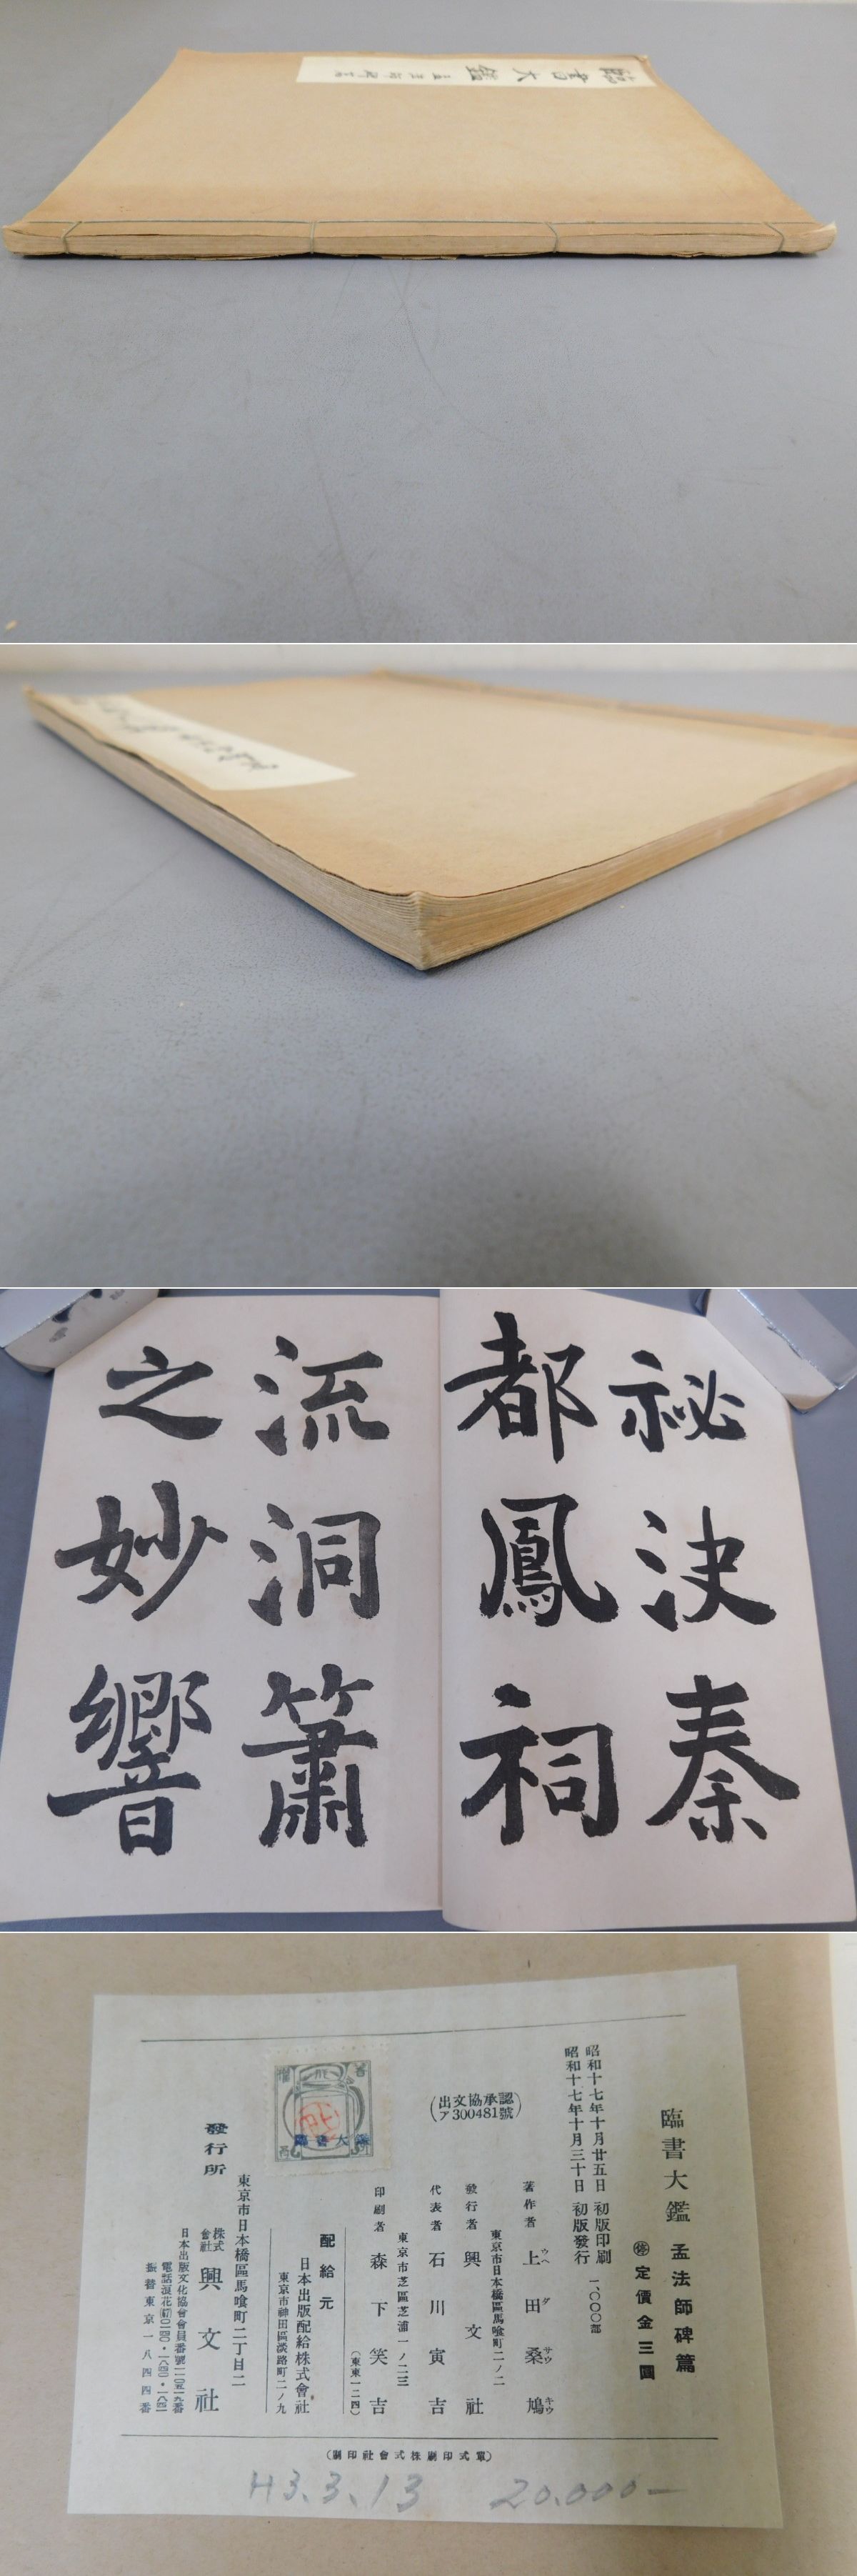 臨書大鑑
祕決秦
都鳳祠
流洞簫
之妙響
臨書大鑑 孟法師碑篇
停 定價金三圓
昭和十七年十月廿五日 初版印刷
昭和十七年十月三十日 初版發行
一、〇〇〇部
(出文協承認
ア300481號)
著作者 上田桑鳩
ウヘ ダ サウ キウ
東京市日本橋區馬喰町二ノ二
發行者 興文社
代表者 石川寅吉
東京市芝區芝浦一ノ二三
印刷者 森下笑吉
(東東一二四)
配給元
日本出版配給株式會社
東京市神田區淡路町二ノ九
東京市日本橋區馬喰町二丁目二
發行所 株式會社 興文社
日本出版文化協會會員番號
振替東京一八四四番
(單式印刷株式會社印刷)
H3.3.13 20.000-